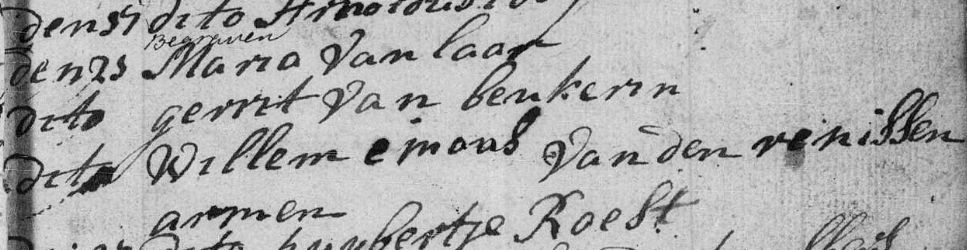 den 31 dito Arnoldus
Begraven
den 25 Maria Van laar
dito gerrit Van beukerin
dito Willem ejmous Van den renissen
armen
dito huybertje Roest